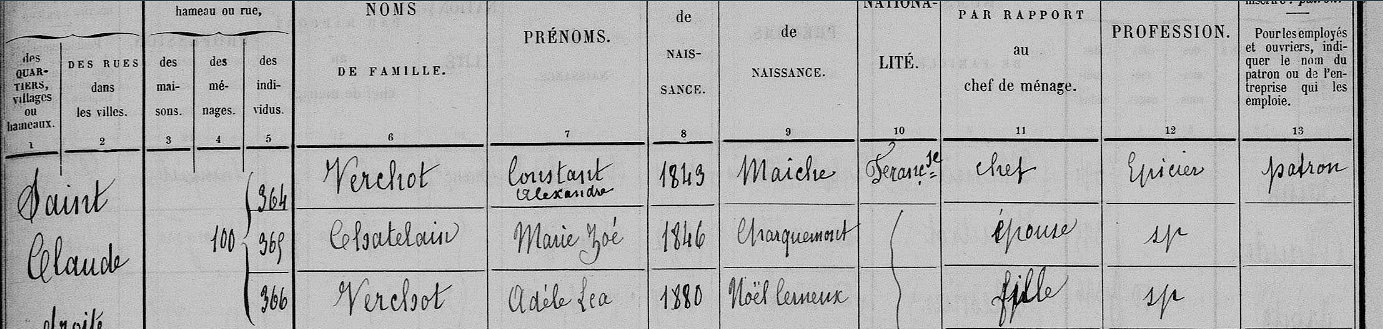 hameau ou rue,
NOMS
DE FAMILLE.
PRÉNOMS.
de
NAIS-
SANCE.
de
NAISSANCE.
NATIONA-
LITÉ.
PAR RAPPORT
au
chef de ménage.
PROFESSION.
Pour les employés
et ouvriers, indi-
quer le nom du
patron ou de l'en-
treprise qui les
emploie.
des
QUAR-
TIERS,
villages
ou
hameaux.
DES RUES
dans
les villes.
des
mai-
sons.
des
mé-
nages.
des
indi-
vidus.
1 2 3 4 5 6 7 8 9 10 11 12 13
Saint 364 Verchot Constant Alexandre 1843 Maiche Franç.se chef Epicier patron
Claude 100 365 Chatelain Marie Zoé 1846 Charquemont épouse sp
droite 366 Verchot Adèle Lea 1880 Noël Cerneux fille sp